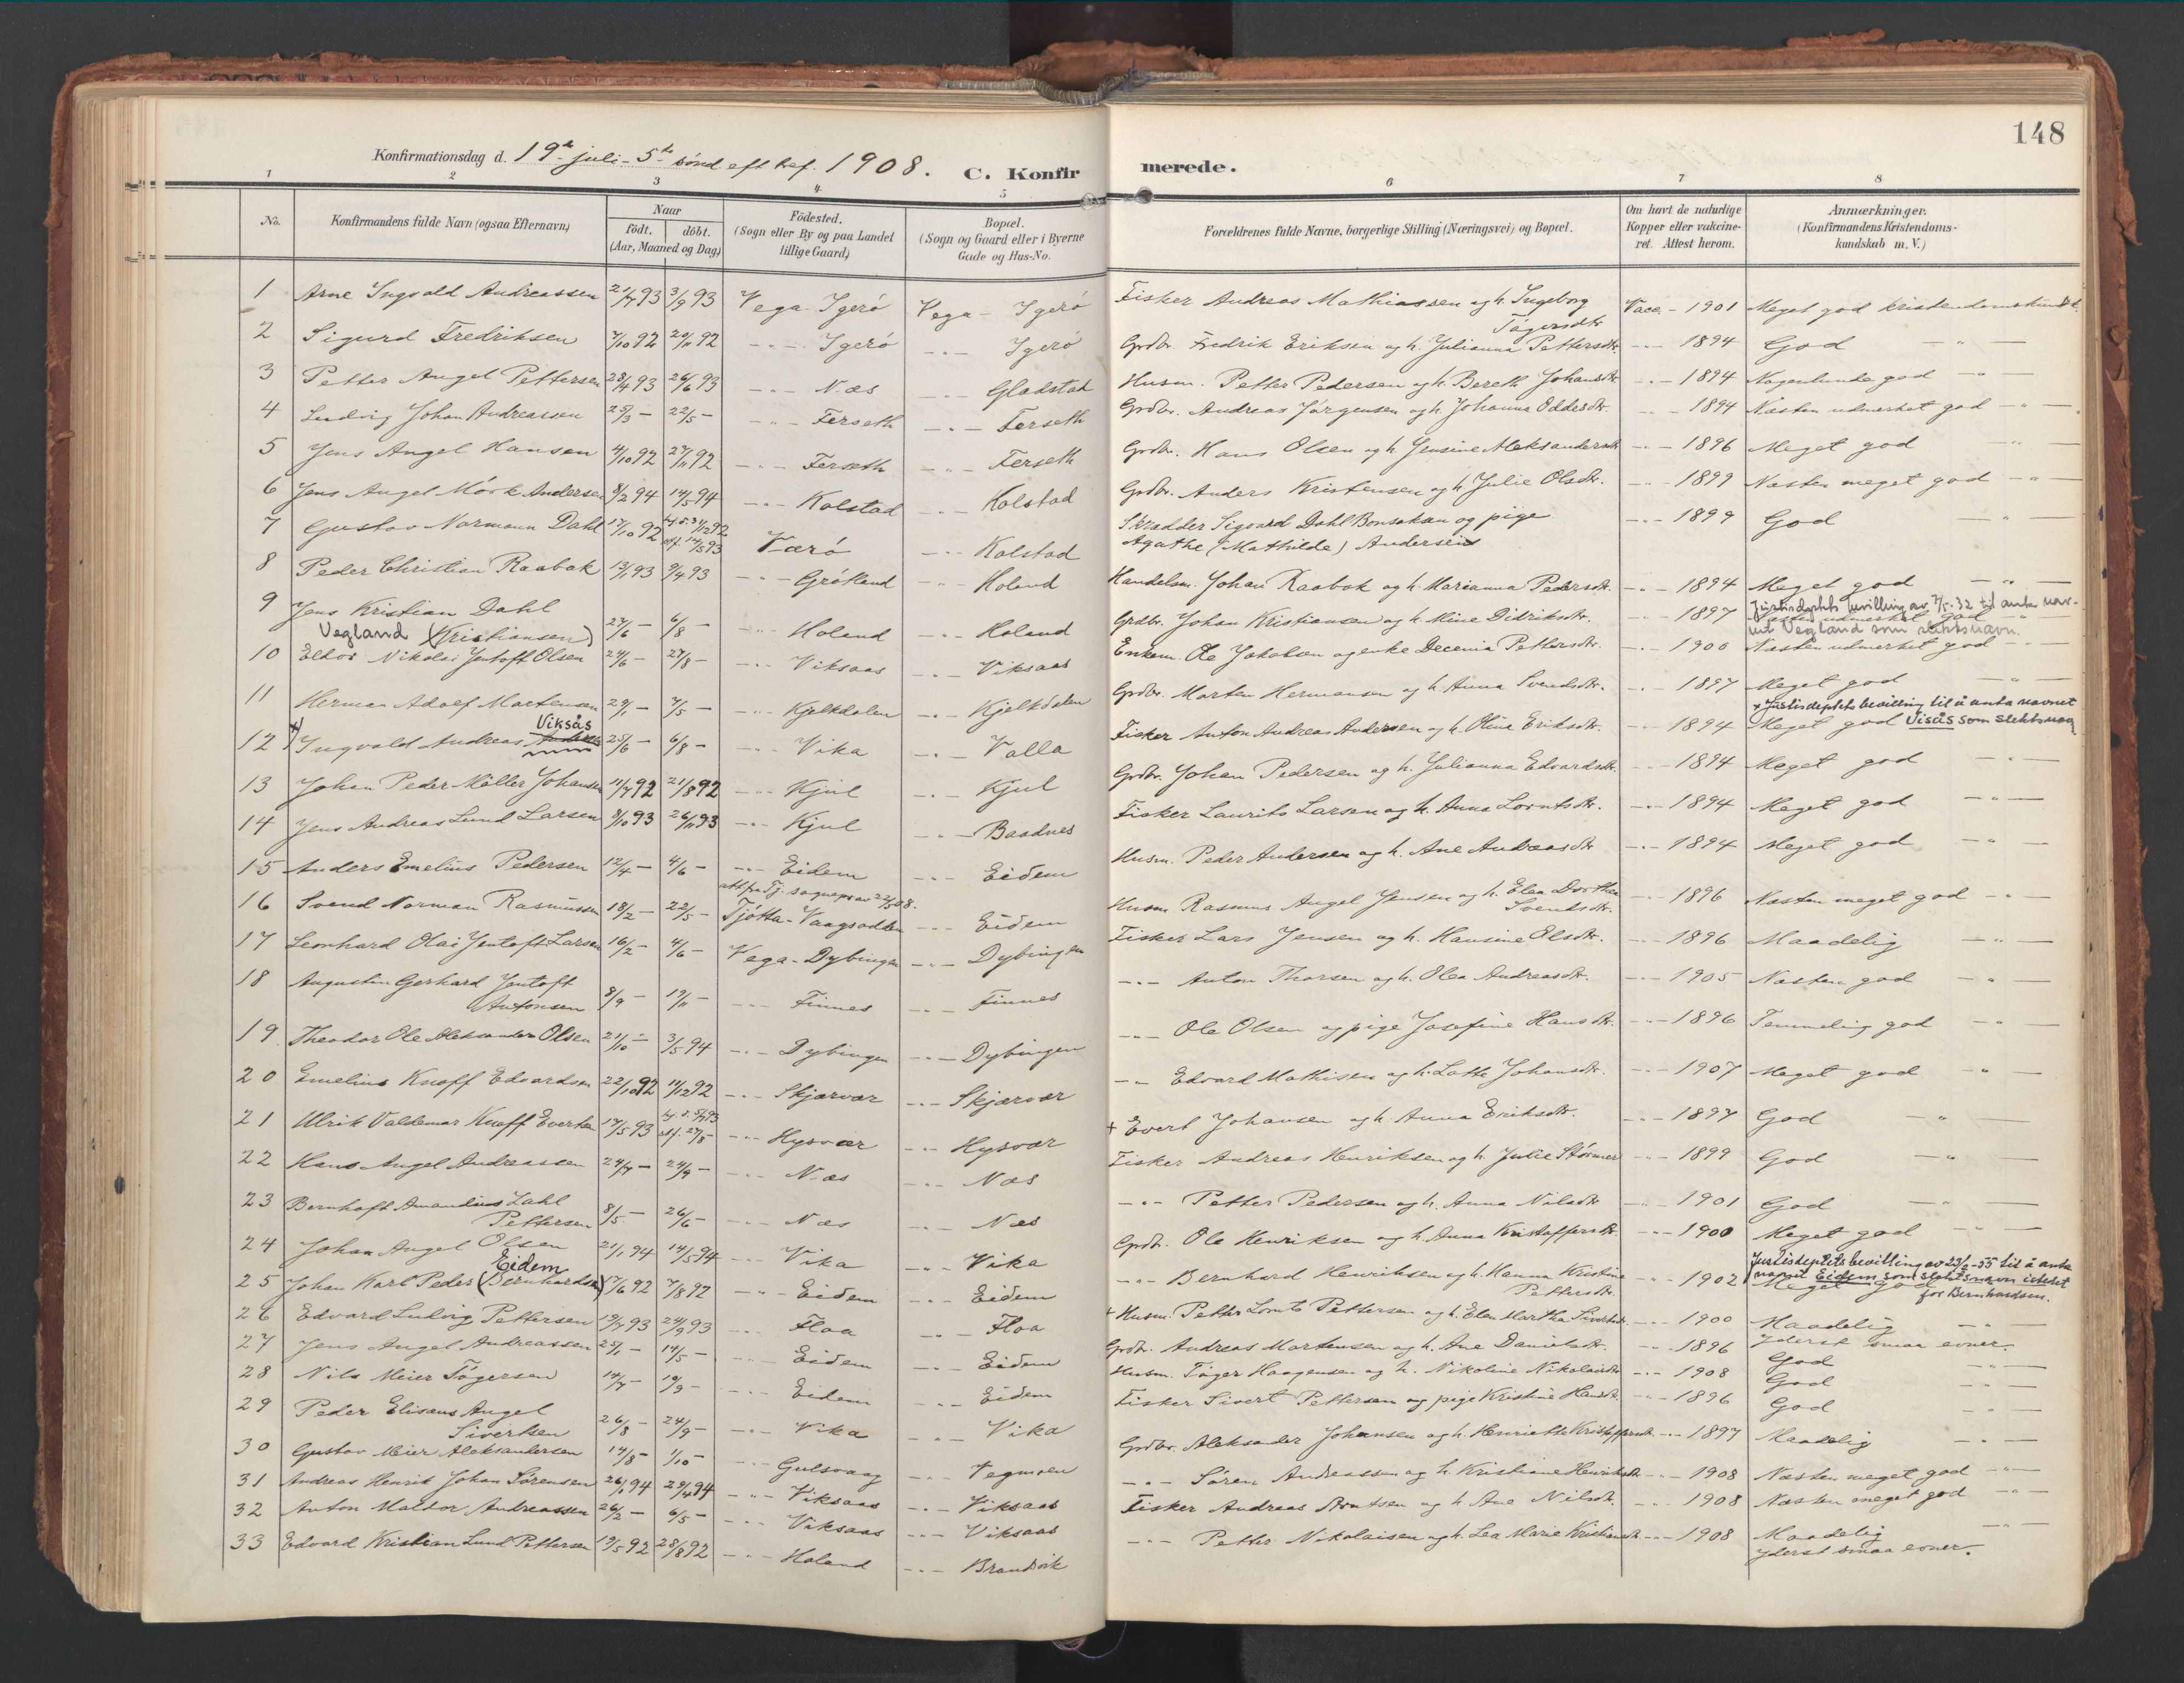 148
Konfirmationsdag d. 19de juli - 5te sönd eft tref. 1908. C. Konfirmerede.
1 2 3 4 5 6 7 8
No. | Konfirmandens fulde Navn (ogsaa Efternavn) | Naar födt. döbt. (Aar, Maaned og Dag) | Födested. (Sogn eller By og paa Landet tillige Gaard) | Bopæl. (Sogn og Gaard eller i Byerne Gade og Hus-No. | Forældrenes fulde Navne, borgerlige Stilling (Næringsvei) og Bopæl. | Om havt de naturlige Kopper eller vakcineret. Attest herom. | Anmærkninger. (Konfirmandens Kristendomskundskab m. V.)
1 Arne Ingvald Andreassen 21/7 93 3/9 93 Vega - Igerö Vega - Igerö Fisker Andreas Mathiassen og h. Ingeborg Tögersdtr Vacc. - 1901 Meget god kristendomskundsk.
2 Sigurd Fredriksen 7/10 92 20/11 92 -"- Igerö -"- Igerö Grdbr. Fredrik Eriksen og h. Julianna Pettersdtr. -"- 1894 God -"-
3 Petter Angel Pettersen 28/4 93 26/6 93 -"- Næs -"- Gladstad Husm. Petter Pedersen og h. Bereth Johansdtr -"- 1894 Nogenlunde god -"-
4 Ludvig Johan Andreassen 25/3 - 22/5 - -"- Ferseth -"- Ferseth Grdbr. Andreas Jörgensen og h. Johanna Oddesdtr. -"- 1894 Næsten udmerket god -"-
5 Jens Angel Hansen 4/10 92 27/11 92 -"- Ferseth -"- Ferseth Grdbr. Hans Olsen og h. Jensine Aleksandersdtr -"- 1896 Meget god -"-
6 Jens Angel Mörk Andersen 8/2 94 14/5 94 -"- Kolstad -"- Kolstad Grdbr. Anders Kristensen og h. Julie Olsdtr. -"- 1899 Næsten meget god -"-
7 Gustav Normann Dahl 17/10 92 hj. d. 31/12 92 stf. 14/5 93 Værö -"- Kolstad Skrædder Sigvard Dahl Bonsaksen og pige Agathe (Mathilde) Andersen -"- 1899 God -"-
8 Peder Christian Raabak 13/1 93 9/4 93 -"- Grötland -"- Holand Handelsm. Johan Raabak og h. Marianna Pedersdtr. -"- 1894 Meget god -"-
9 Jens Kristian Dahl Vegland (Kristiansen) 27/6 - 6/8 - -"- Holand -"- Holand Grdbr. Johan Kristiansen og h. Mine Didriksdtr. -"- 1897 Næsten udmerket god
Justisdeptets bevilling av 7/5-32 til anta navnet Vegland som slektsnavn.
10 Elhor Nikolai Jentoft Olsen 24/6 - 27/8 - -"- Viksaas -"- Viksaas Enkem. Ole Jakobsen og enke Decenia Pettersdtr. -"- 1900 Næsten udmerket god -"-
11 Herman Adolf Martensen 29/1 - 7/5 - -"- Kjelkdalen -"- Kjelkdalen Grdbr. Morten Hermansen og h. Anna Svendsdtr. -"- 1897 Meget god -"-
12 x) Ingvald Andreas Anders Viksås 25/6 - 6/8 - -"- Vika -"- Valla Fisker Anton Andreas Andersen og h. Oline Eriksdtr. -"- 1894 Meget god
x Justisdeptets bevilling til å anta navnet Visås som slektsnavn
13 Johan Peder Möller Johansen 11/7 92 21/8 92 -"- Kjul -"- Kjul Grdbr. Johan Pedersen og h. Julianna Edvardsdtr. -"- 1894 Meget god -"-
14 Jens Andreas Lund Larsen 8/10 93 26/11 93 -"- Kjul -"- Baadnes Fisker Laurits Larsen og h. Anna Lorntsdtr. -"- 1894 Meget god -"-
15 Anders Emelius Pedersen 12/4 - 4/6 - -"- Eidem -"- Eidem Husm. Peder Andersen og h. Ane Andreasdtr -"- 1894 Meget god -"-
16 Svend Norman Rasmussen 18/2 - 22/5 - att fra Tj. sognepr av 22/5 08. Tjötta - Vaagsodden -"- Eidem Husm Rasmus Angel Jensen og h. Elea Dorthea Svendsdtr. -"- 1896 Næsten meget god -"-
17 Leonhard Olai Jentoft Larsen 16/2 - 4/6 - Vega - Dybingen -"- Dybingen Fisker Lars Jensen og h. Hansine Olsdtr. -"- 1896 Maadelig -"-
18 Augustin Gerhard Jentoft Antonsen 8/9 - 19/11 - -"- Finnes -"- Finnes -"- Anton Thorsen og h. Olea Andreasdtr. -"- 1905 Næsten god -"-
19 Theodor Ole Aleksander Olsen 21/10 - 3/5 94 -"- Dybingen -"- Dybingen -"- Ole Olsen og pige Josefine Hansdtr. -"- 1896 Temmelig god -"-
20 Emelius Knoff Edvardsen 22/10 92 11/12 92 -"- Skjærvær -"- Skjærvær -"- Edvard Mathisen og h. Lotte Johansdtr. -"- 1907 Meget god -"-
21 Ulrik Valdemar Knoff Evertsen 17/5 93 hj. d. 5/7 93 stf. 27/8 - -"- Hysvær -"- Hysvær + Evert Johansen og h. Anna Eriksdtr. -"- 1897 God -"-
22 Hans Angel Andreassen 24/7 - 24/9 - -"- Næs -"- Næs Fisker Andreas Henriksen og h. Julie Störmer -"- 1899 God -"-
23 Bernhoft Amandius Zahl Pettersen 8/5 - 26/6 - -"- Næs -"- Næs -"- Petter Pedersen og h. Anna Nilsdtr -"- 1901 God -"-
24 Johan Angel Olsen 21/1 94 14/5 94 -"- Vika -"- Vika Grdbr. Ole Henriksen og h. Anna Kristoffersdtr. -"- 1900 Meget god -"-
25 Johan Karl Peder (Bernhardsen) Eidem 17/6 92 7/8 92 -"- Eidem -"- Eidem -"- Bernhard Henriksen og h. Hanna Kristine Pettersdtr. -"- 1902 Meget god
Justisdeptets bevilling av 23/2-55 til å anta navnet Eidem som slektsnavn istedet for Bernhardsen.
26 Edvard Ludvig Pettersen 19/7 93 24/9 93 -"- Floa -"- Floa + Husm. Petter Lornts Pettersen og h. Elen Martha Sivertsdtr -"- 1900 Maadelig -"- Yderst smaa evner.
27 Jens Angel Andreassen 25/1 - 14/5 - -"- Eidem -"- Eidem Grdbr. Andreas Martensen og h. Ane Danielsdtr. -"- 1896 God
28 Nils Meier Tögersen 14/7 - 10/9 - -"- Eidem -"- Eidem Husm. Töger Haagensen og h. Nikoline Nikolaisdtr -"- 1908 God -"-
29 Peder Elisæus Angel Sivertsen 26/8 - 24/9 - -"- Vika -"- Vika Fisker Sivert Pettersen og pige Kristine Hansdtr. -"- 1896 God -"-
30 Gustav Meier Aleksandersen 14/8 - 1/10 - -"- Gulsvaag -"- Vegmoen Grdbr. Aleksander Johansen og h. Henriette Kristoffersdtr. -"- 1897 Maadelig -"-
31 Andreas Henrik Johan Sörensen 26/1 94 29/4 94 -"- Viksaas -"- Viksaas -"- Sören Andreassen og h. Kristiane Henriksdtr -"- 1908 Næsten meget god -"-
32 Anton Maldor Andreassen 26/2 - 6/5 - -"- Viksaas -"- Viksaas Fisker Andreas Arntsen og h. Ane Nilsdtr. -"- 1908 Næsten meget god -"-
33 Edvard Kristian Lund Pettersen 19/5 92 28/8 92 -"- Holand -"- Brandvik -"- Petter Nikolaisen og h. Lea Marie Kristiansdtr -"- 1908 Maadelig -"- Yderst smaa evner.